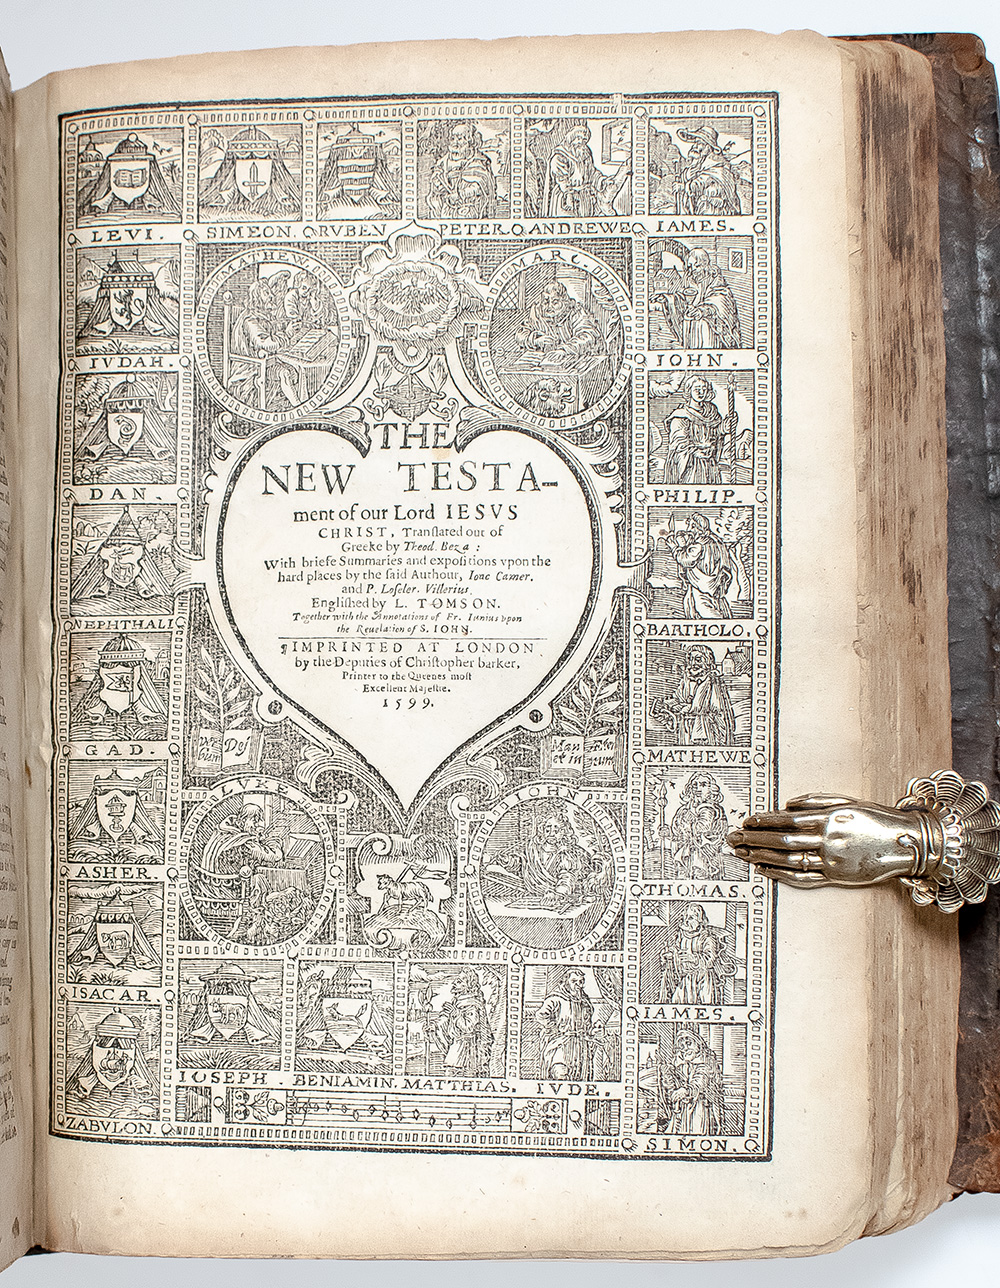 LEVI. SIMEON. RVBEN PETER ANDREWE IAMES.
MATHEW MARC.
IVDAH. IOHN.
DAN. PHILIP.
NEPHTHALI BARTHOLO.
GAD. MATHEWE
ASHER. THOMAS.
ISACAR. IAMES.
ZABVLON. SIMON.
THE
NEW TESTA-
ment of our Lord IESVS
CHRIST, Tranſlated out of
Greeke by Theod. Beza:
With briefe Summaries and expoſitions vpon the
hard places by the ſaid Authour, Ioac Camer.
and P. Loſeler. Villerius.
Engliſhed by L. TOMSON.
Together with the Annotations of Fr. Iunius vpon
the Reuelation of S. IOHN.
¶IMPRINTED AT LONDON
by the Deputies of Chriſtopher barker,
Printer to the Queenes moſt
Excellent Majeſtie.
1599.
LVKE IOHN
IOSEPH. BENIAMIN. MATTHIAS. IVDE.